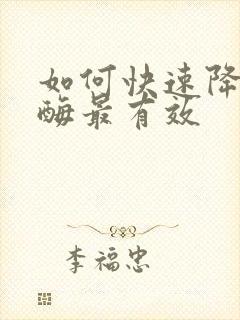 如何快速降
酶最有效
李福忠